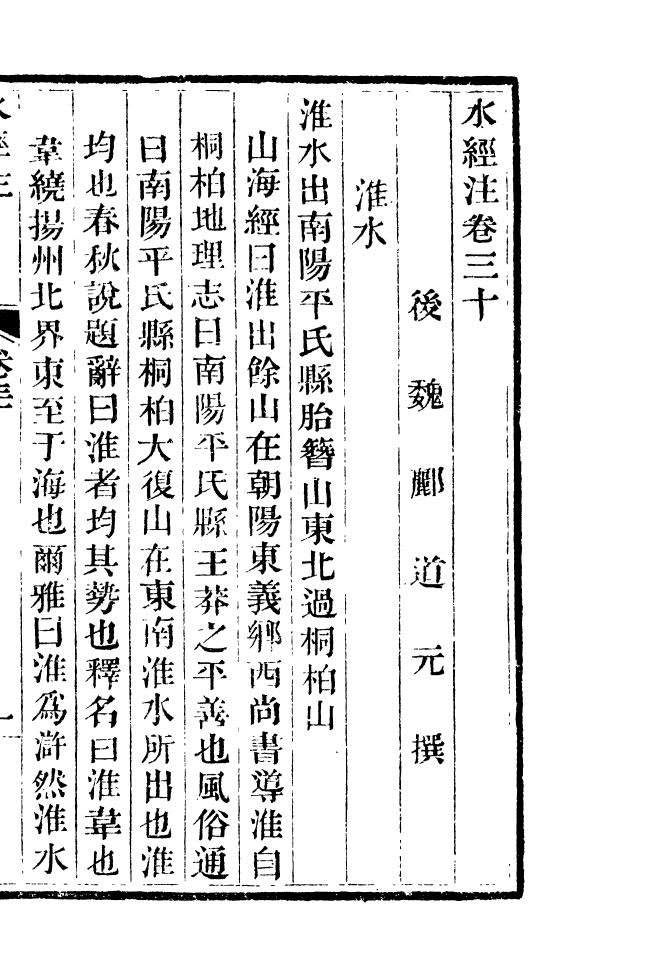 水經注卷三十
後魏酈道元撰
淮水
淮水出南陽平氏縣胎簪山東北過桐柏山
山海經曰淮出餘山在朝陽東義鄉西尚書導淮自
桐柏地理志曰南陽平氏縣王莽之平善也風俗通
曰南陽平氏縣桐柏大復山在東南淮水所出也淮
均也春秋說題辭曰淮者均其勢也釋名曰淮韋也
韋繞揚州北界東至于海也爾雅曰淮為滸然淮水
水經注
卷三十
一